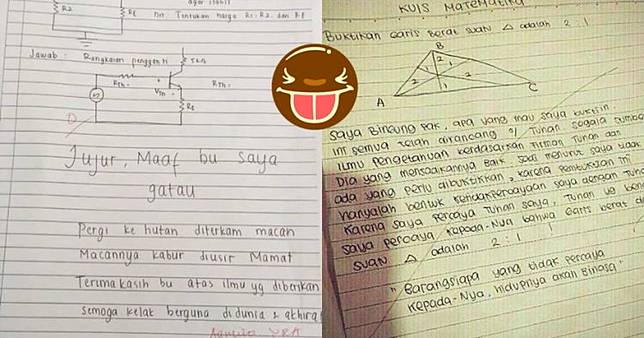 agar stabil
R2
RE
Tentukan harga R1, R2, dan RE
Jawab : Rangkaian pengganti
RTh
VTh
RE
RTh =
Jujur, Maaf bu saya
gatau
Pergi ke hutan diterkam macan
Macannya kabur diusir Mamat
Terima kasih bu atas ilmu yg diberikan
Semoga kelak berguna didunia & akhira
KUIS Matematika
Buktikan Garis berat suatu △ adalah 2 : 1
B
2
1
1
2
2
1
A
C
Saya Bingung Pak, apa yang mau saya buktiin
Ini semua telah dirancang o/ Tuhan segala sumbe
ilmu pengetahuan berdasarkan firman Tuhan dan
Dia yang mensaksikannya Baik. Jadi menurut saya tidak
ada yang perlu dibuktikan, karena pembuktian ini
hanyalah bentuk ketidakpercayaan saya dengan Tuha
Karena saya percaya Tuhan saya, Tuhan yg
saya percaya kepada-Nya bahwa Garis berat d
suatu △ adalah 2 : 1
" Barangsiapa yang tidak percaya
kepada-Nya, hidupnya akan Binasa "